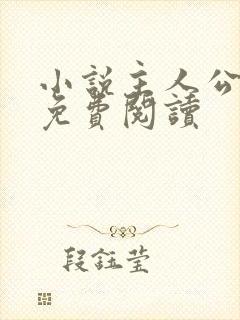 小說主人公
免費閱讀
段鈺莹